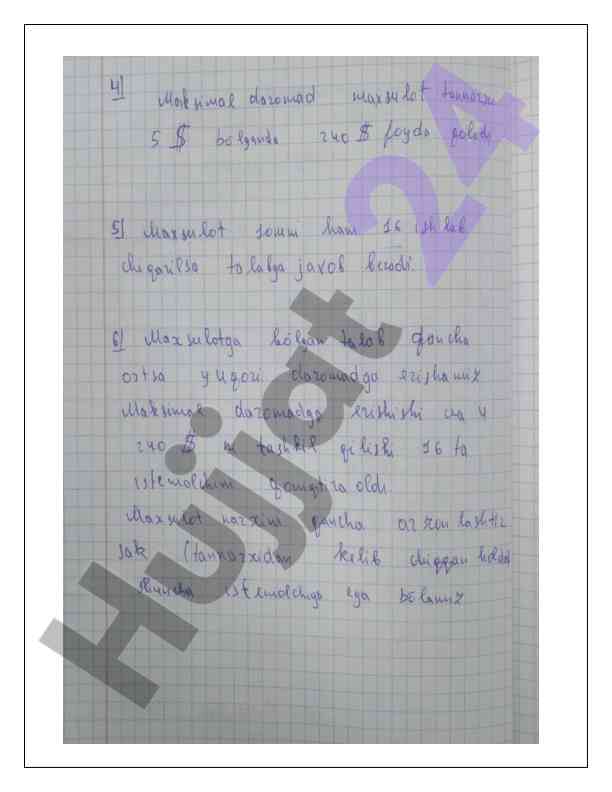 4)
Maksimal daromad maxsulot tannarxi
5 $ bo'lganda 240 $ foyda
5) Maxsulot soni ham 16 ishlab
chiqarilsa talabga javob beradi.
6) Maxsulotga bo'lgan talab qancha
ortsa yuqori daromadga erishamiz
Maksimal daromadga erishishi
240 $ ni tashkil qilishi 16 ta
iste'molchini qoniqtira oldi.
Maxsulot narxini qancha arzonlashtir
sak (tannarxidan kelib chiqqan holda)
shuncha iste'molchiga ega bo'lamiz
Hujjat 24